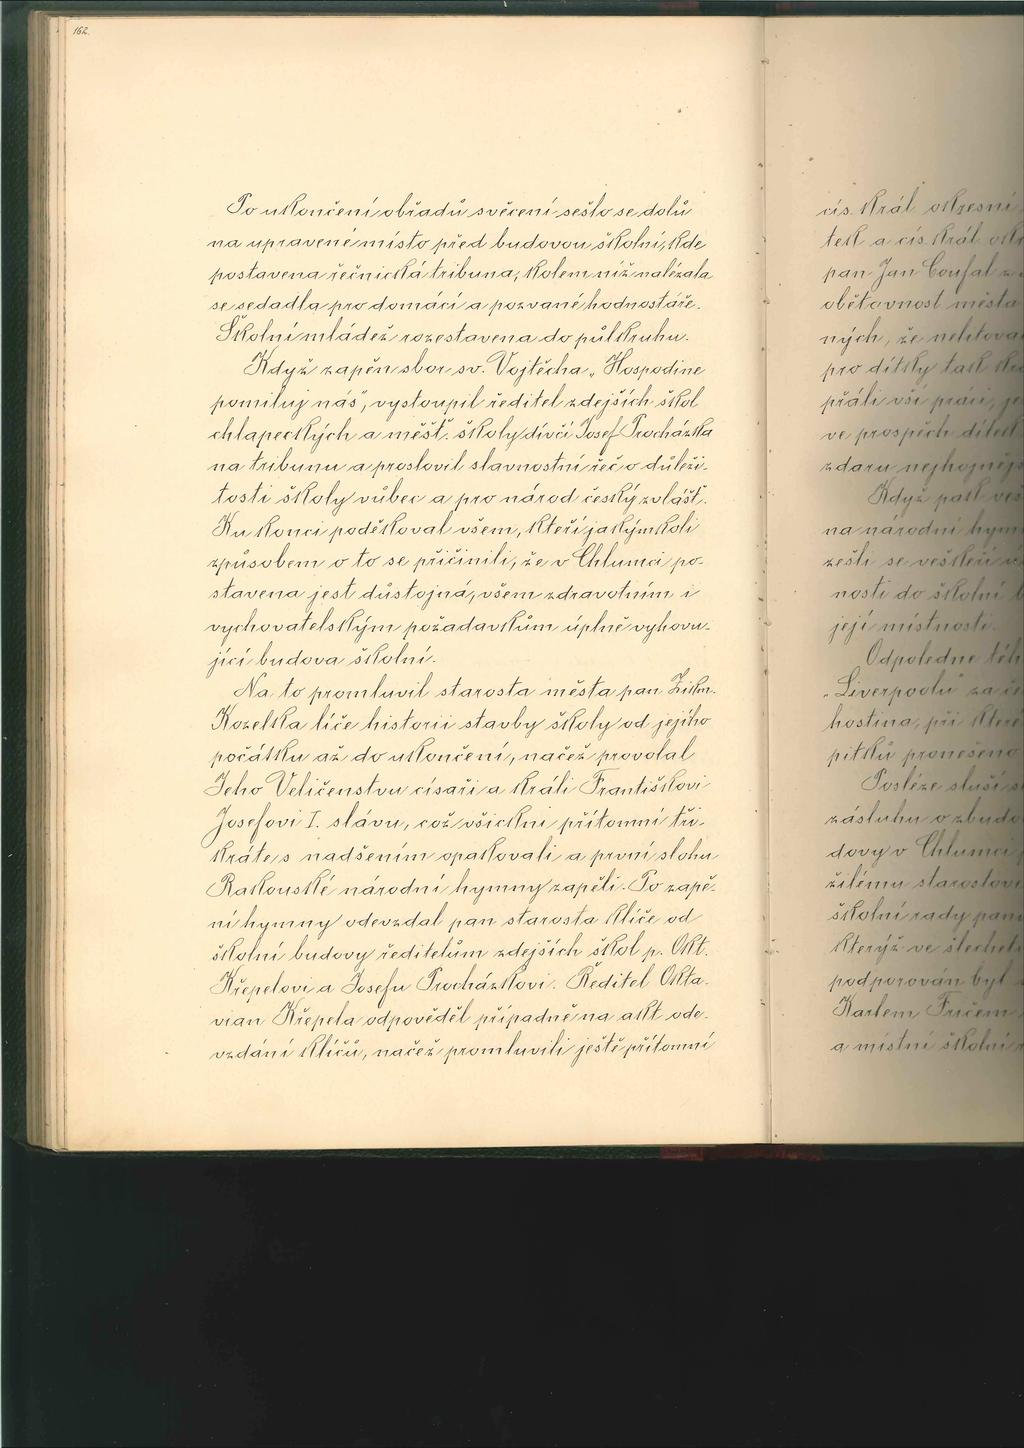 162.
Po ukončení obřadů svěcení sešlo se dolů
na upravené místo před budovou školní, kde
postavena řečnická tribuna, kolem níž nalézala
se sedadla pro domácí a pozvané hodnostáře.
Školní mládež rozestavena do půlkruhu.
Když zapěn sbor sv. Vojtěcha „Hospodine
pomiluj nás", vystoupil ředitel zdejších škol
chlapeckých a měšť. školy dívčí Josef Procházka
na tribunu a proslovil slavnostní řeč o důleži-
tosti školy vůbec a pro národ český zvlášť.
Ku konci poděkoval všem, kteří jakýmkoli
způsobem o to se přičinili, že v Chlumci po-
stavena jest důstojná, všem zdravotním i
vychovatelským požadavkům úplně vyhovu-
jící budova školní.
Na to promluvil starosta města pan Zikm.
Kozelka líče historii stavby školy od jejího
počátku až do ukončení, načež provolal
Jeho Veličenstvu císaři a králi Františkovi
Josefovi I. slávu, což všickni přítomní tři-
kráte s nadšením opakovali a první slohu
Rakouské národní hymny zapěli. Po zapě-
ní hymny odevzdal pan starosta klíče od
školní budovy ředitelům zdejších škol p. Okt.
Křepelovi a Josefu Procházkovi. Ředitel Okta-
vian Křepela odpověděl případně na akt ode-
vzdání klíčů, načež promluvili ještě přítomní
cís. král. okresní
tek a cís. král.
pan Jan Coufal z
obětavnost města
ných, že nelitova
pro dítky tak
přáli vší práci, je
ve prospěch dítek
zdaru nejhojněj
Když pak
na národní hym
zešli se veškeří
nosti do školní
její místnosti.
Odpoledne
„Liverpoolu" za
hostina, při které
pitků proneseno
Posléze sluší
zásluhu o zbudo
dovy v Chlumci
žilému starostovi
školní rady pan
kterýž ve šlechet
podporován byl
Karlem Fričem
a místní školní